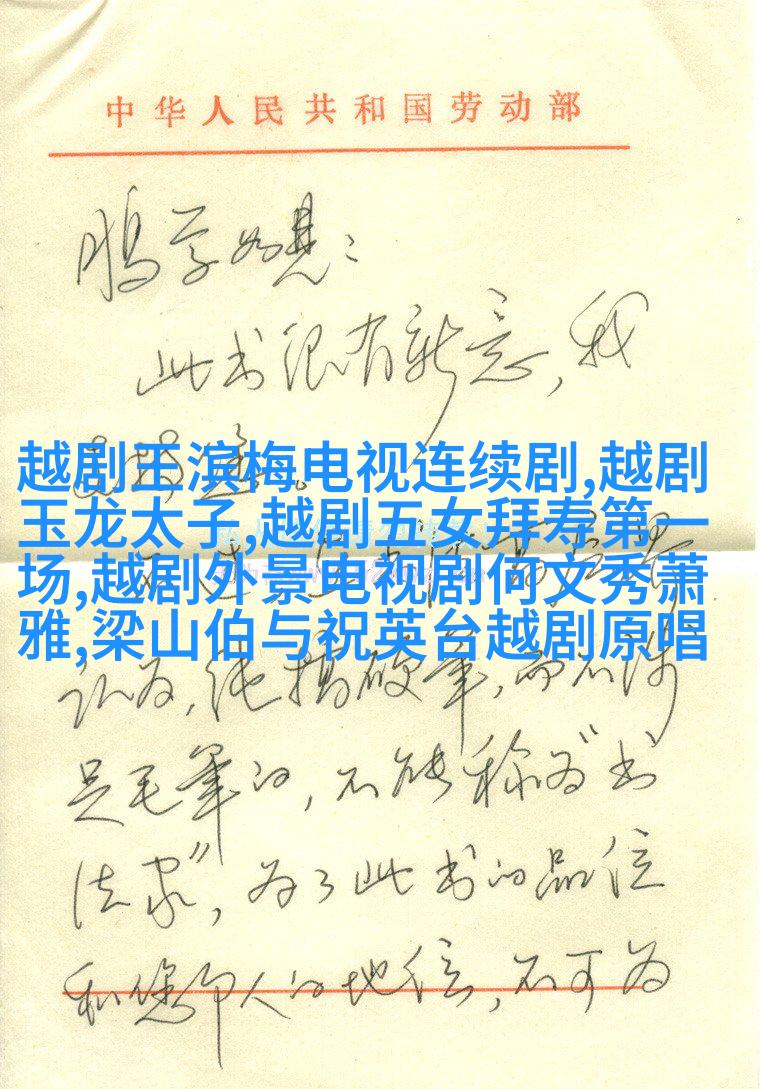 中华人民共和国劳动部
鹏学如晤：
此书很有新意，我
越剧王滨梅电视连续剧,越剧
玉龙太子,越剧五女拜寿第一
场,越剧外景电视剧何文秀萧
雅,梁山伯与祝英台越剧原唱
认为，纯搞硬笔，而不涉
足毛笔的，不能称为“书
法家”，为了此书的品位
和您印人的地位，不可为